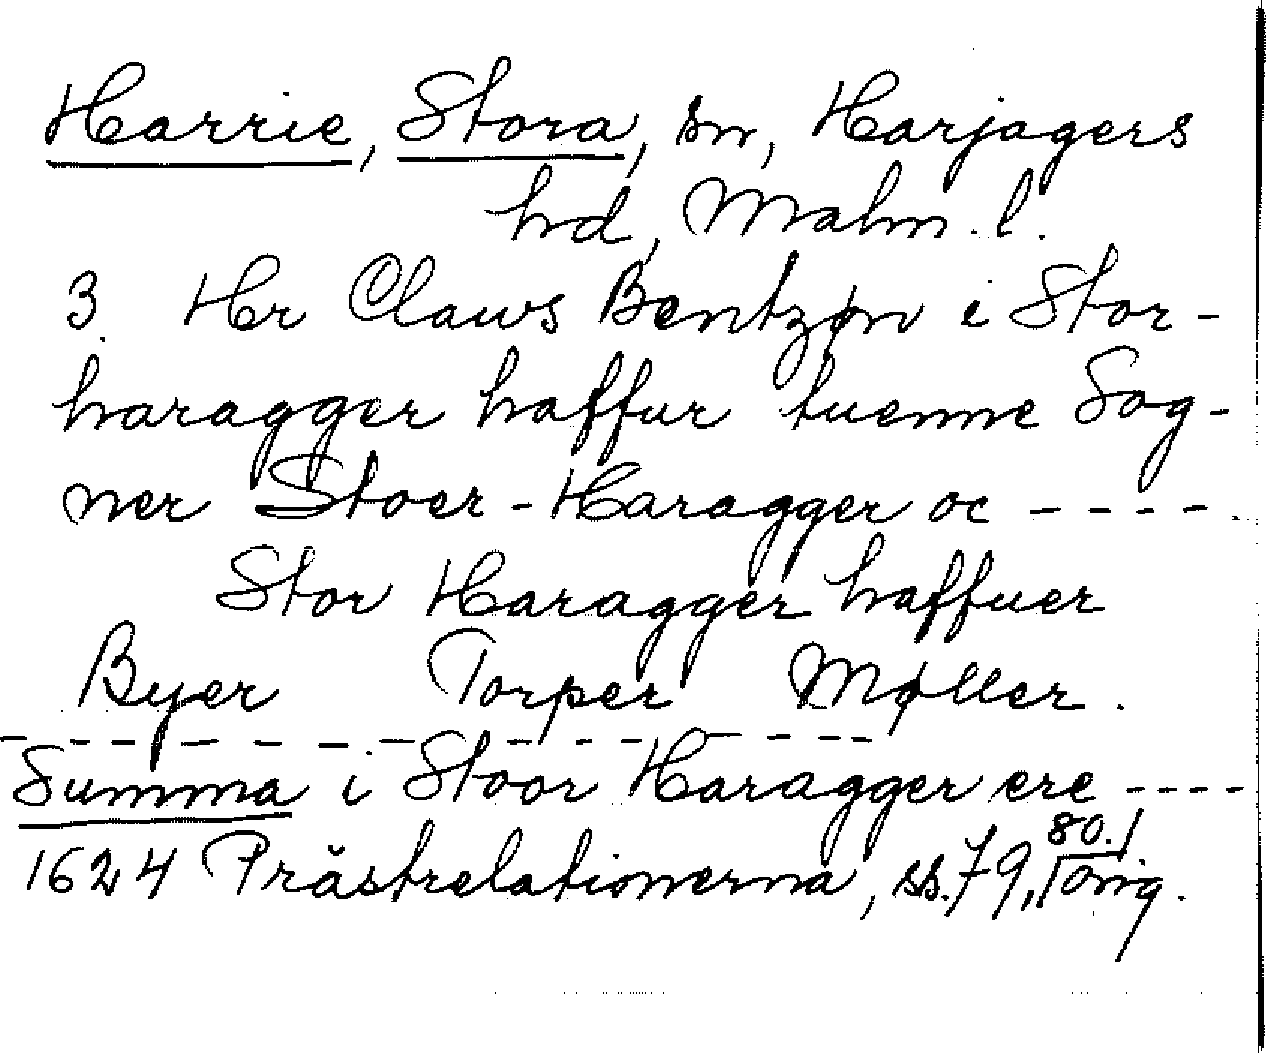 Harrie, Stora, sn, Harjagers
hd, Malm. l.
3. Hr Claus Bentzøn i Stor-
haragger haffur tuenne Sog-
ner Stoer-Haragger oc ----
Stor Haragger haffuer
Byer Torper Møller.
Summa i Stoor Haragger ere ----
1624 Prästrelationerna, ss. 79, 80. Orig.